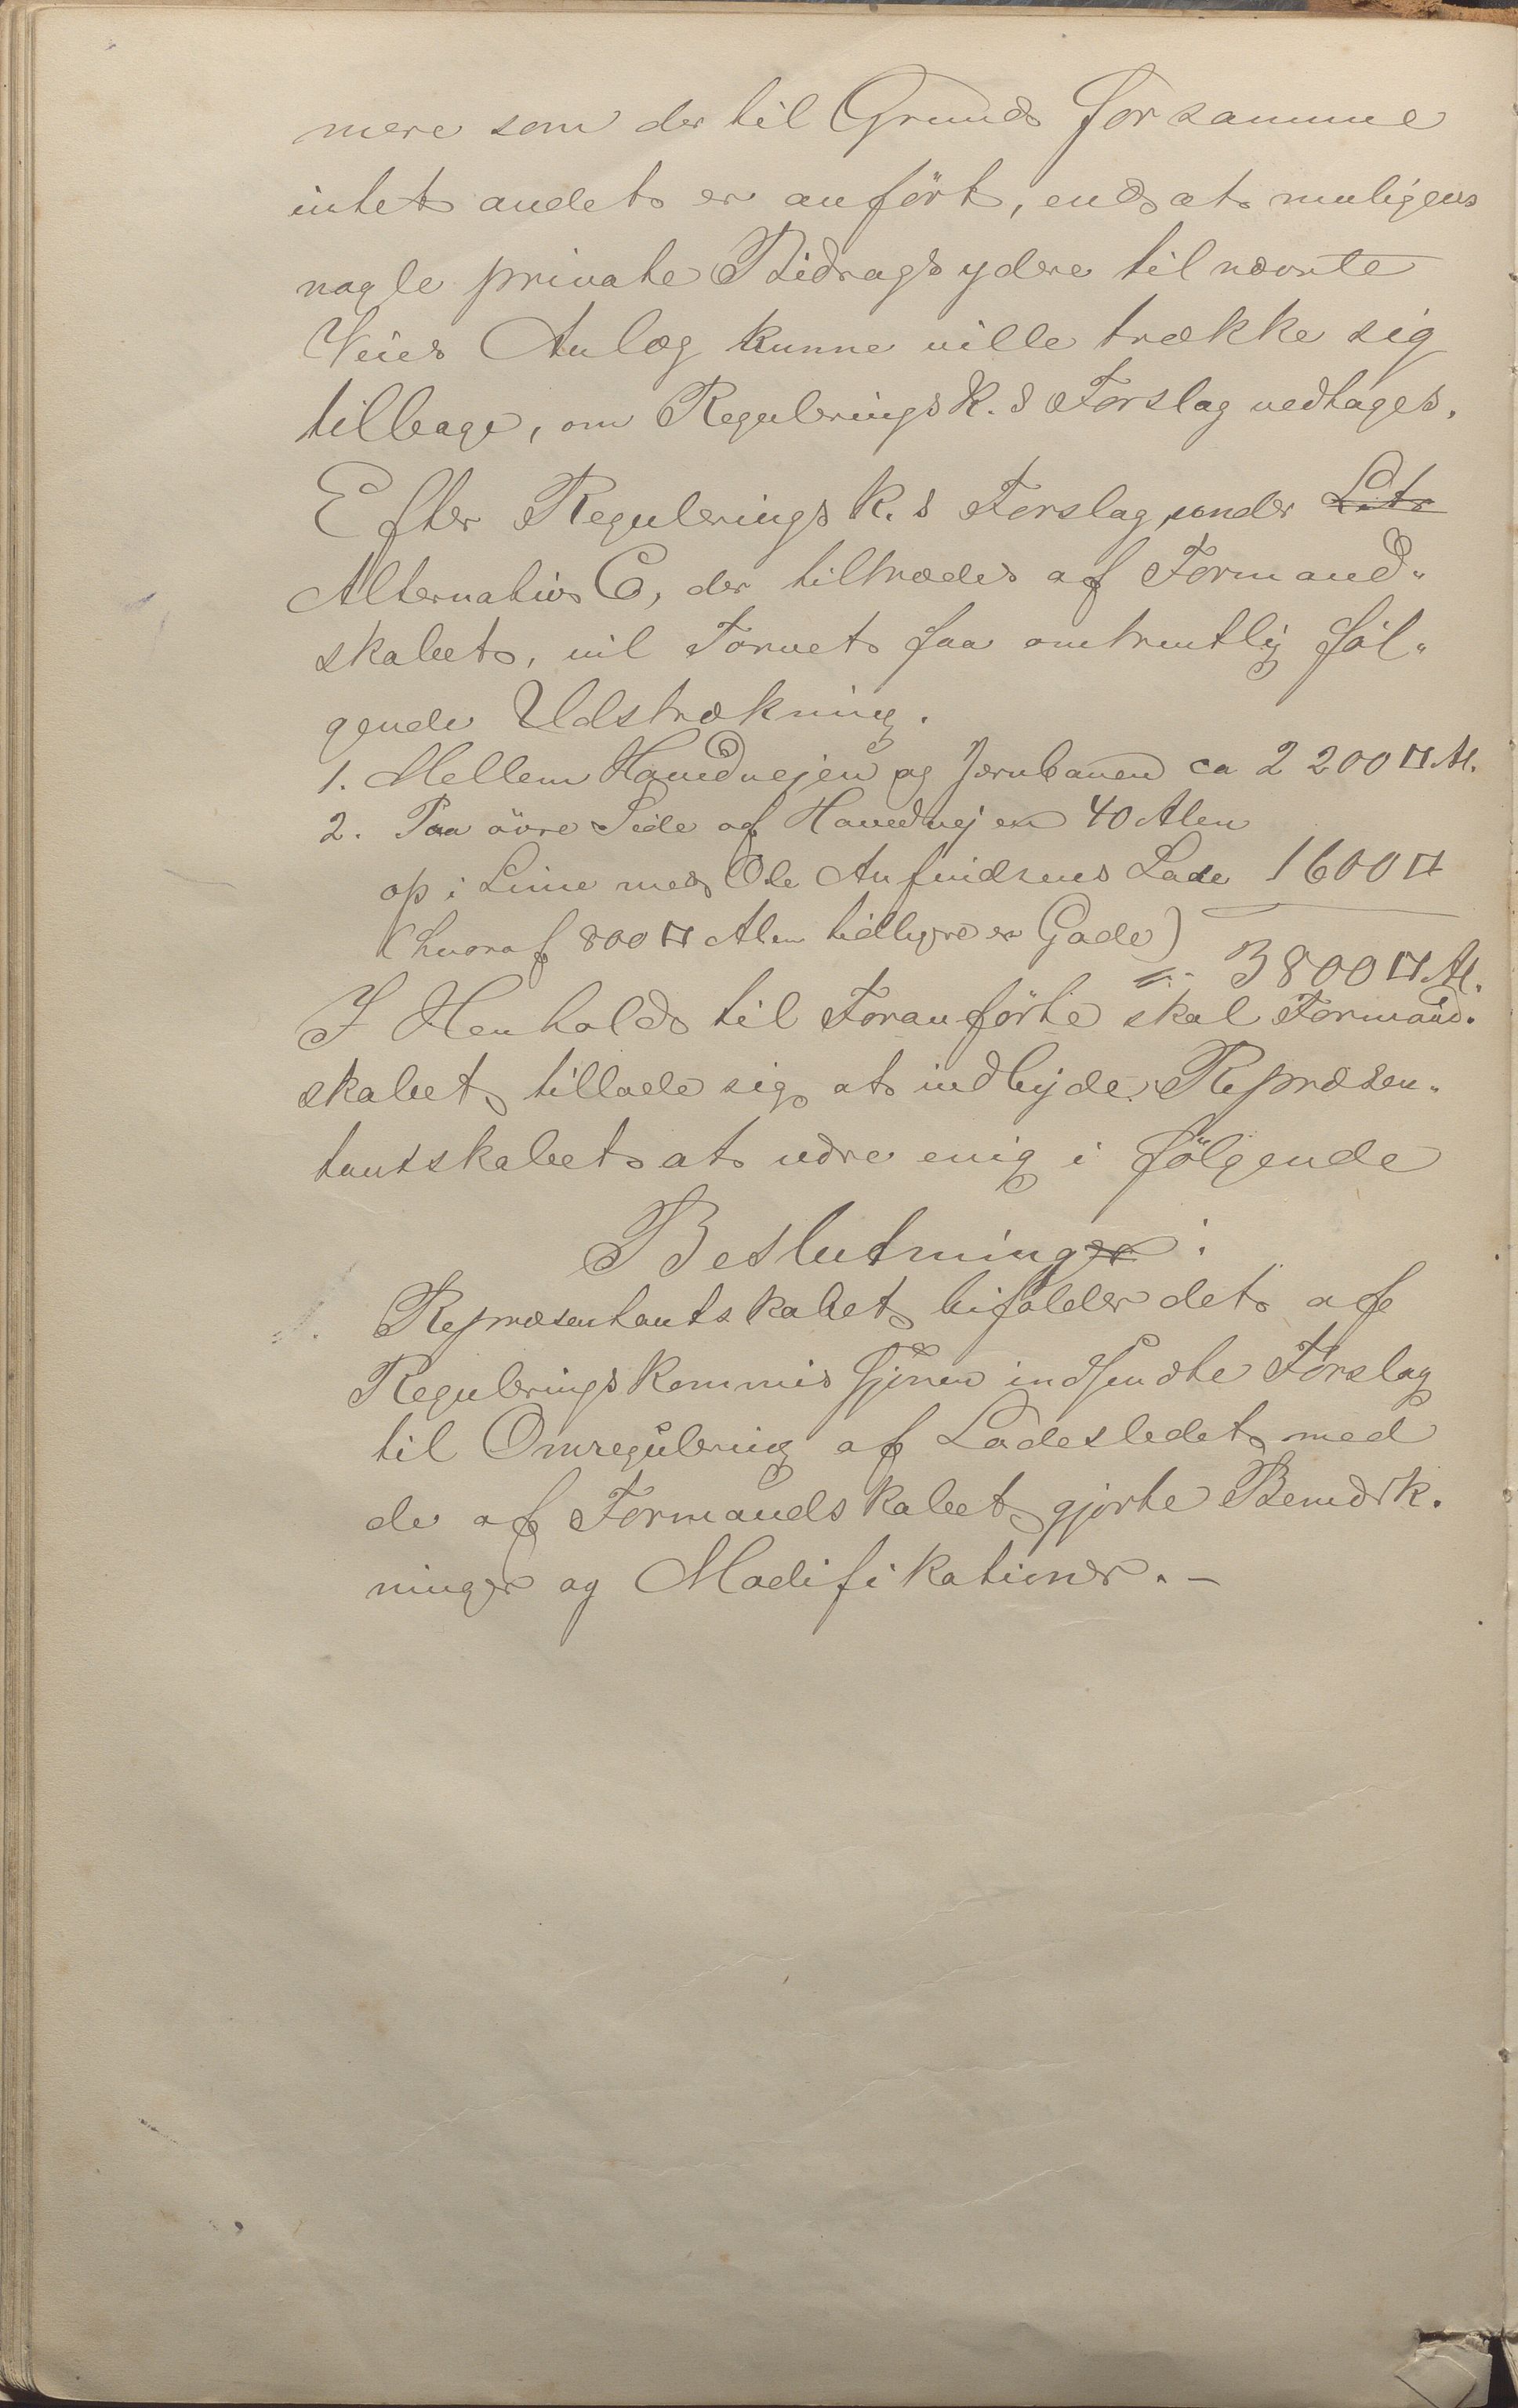 mere som der til Grund for samme
intet andet er anført, end at muligens
nogle private Bidragsydere til nævnte
Veies Anlæg kunne ville trække sig
tilbage, om ReguleringsK.s Forslag vedtages.
Efter ReguleringsK.s Forslag under Litr
Alternativ C, der tiltrædes af Formand-
skabet, vil Torvet faa omtrentlig føl-
gende Udstrækning.
1. Mellem Hovedvejen og Jernbanen ca 2200 □ Al.
2. Paa øvre Side af Hovedvejen 40 Alen
op i Linie med Ole Anfindsens Lade 1600 □
(hvoraf 800 □ Alen tidligere er Gade)
= 3800 □ Al.
I Henhold til Foranførte skal Formand-
skabet tillade sig at indbyde Repræsen-
tantskabet at være enig i følgende
Beslutninger:
Repræsentantskabet bifalder det af
Reguleringskommissjonen indsendte Forslag
til Omregulering af Ladestedet med
de af Formandskabet gjorte Bemærk-
ninger og Modifikationer. -